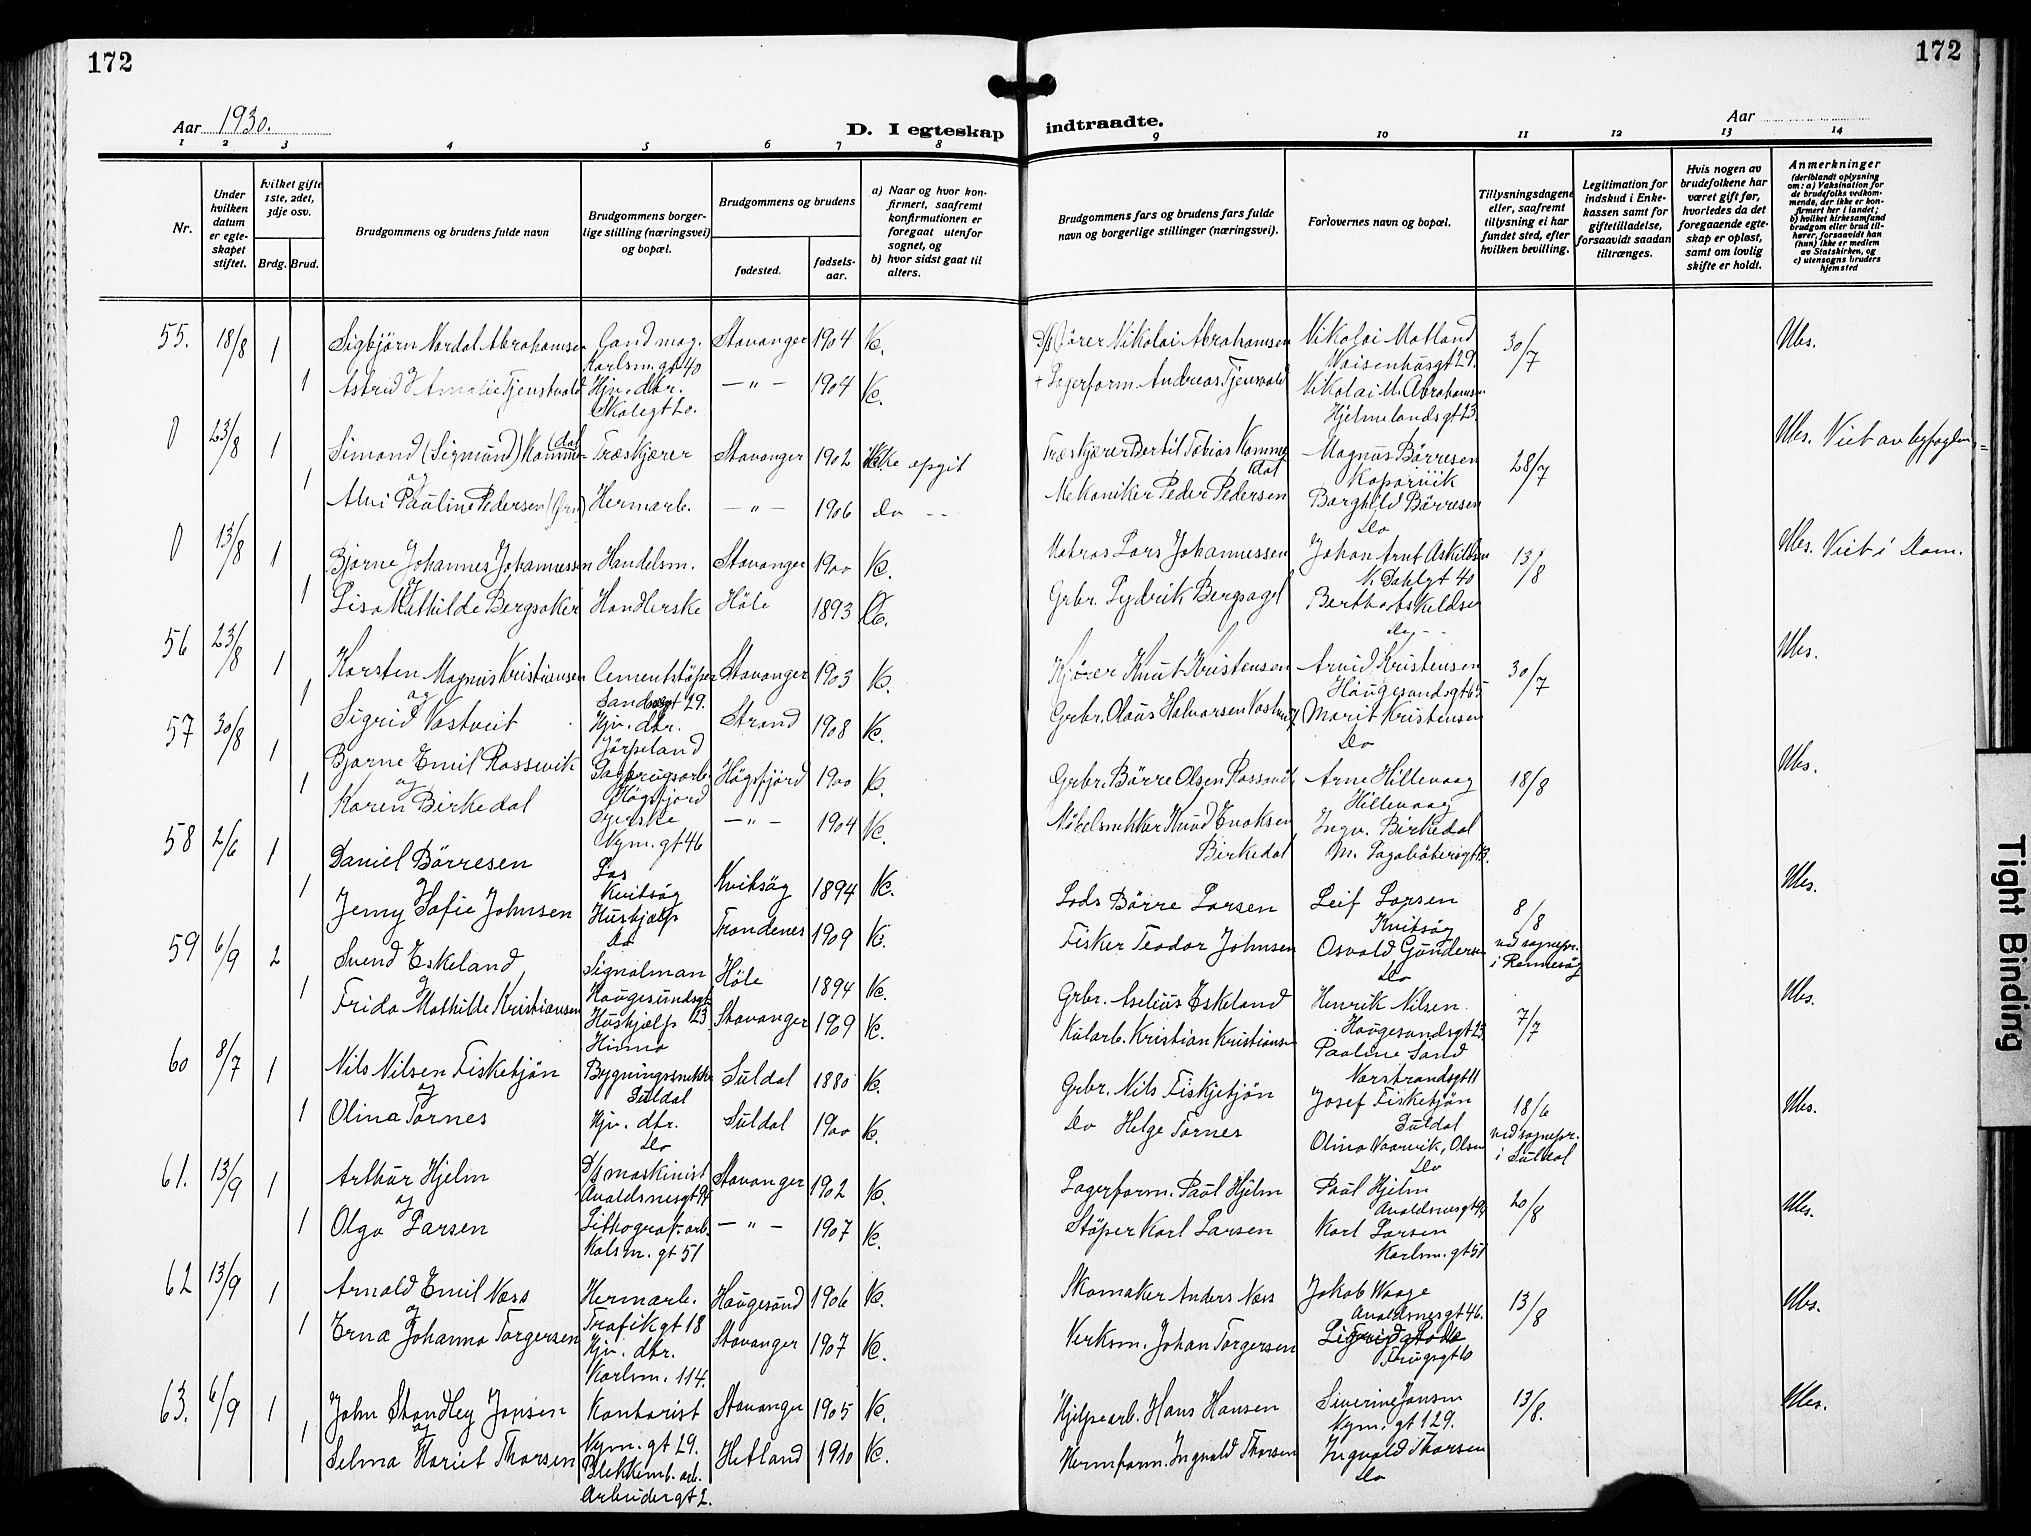 172
172
Aar 1930.
D. I egteskap indtraadte.
Aar
1 2 3 4 5 6 7 8 9 10 11 12 13 14
Nr.
Under hvilken datum er egteskapet stiftet.
hvilket gifte 1ste, 2det, 3dje osv.
Brdg. Brud.
Brudgommens og brudens fulde navn
Brudgommens borgerlige stilling (næringsvei) og bopæl.
Brudgommens og brudens
fødested. fødselsaar.
a) Naar og hvor konfirmert, saafremt konfirmationen er foregaat utenfor sognet, og
b) hvor sidst gaat til alters.
Brudgommens fars og brudens fars fulde navn og borgerlige stillinger (næringsvei).
Forlovernes navn og bopæl.
Tillysningsdagene eller, saafremt tillysning ei har fundet sted, efter hvilken bevilling.
Legitimation for indskud i Enkekassen samt for giftetilladelse, forsaavidt saadan tiltrænges.
Hvis nogen av brudefolkene har været gift før, hvorledes da det foregaaende egteskap er opløst, samt om lovlig skifte er holdt.
Anmerkninger
(deriblandt oplysning om: a) Vaksination for de brudefolks vedkommende, der ikke er konfirmert her i landet; b) hvilket kirkesamfund brudgom eller brud tilhører, forsaavidt han (hun) ikke er medlem av Statskirken, og c) utensogns bruders hjemsted
55. 18/8 1 Sigbjörn Nordal Abrahamsen Gand mag. Karlsm.gt 40 Stavanger 1904 K. Nikolai Abrahamsen Nikolai Motland Waisenhusgt 29. 30/7
og
1 Astrid Amalie Tjenstvold Hjv. dtr. Skolegt 20. —"— 1904 K. + Lagerform. Andreas Tjensvold Nikolai M. Abrahamsen Hjelmelandsgt 23.
0 23/8 1 Simond (Sigmund) Kommedal Træskjærer Stavanger 1902 Ikke opgit Træskjærer Bertil Tobias Kommedal Magnus Börresen Kopervik 28/7 Viet av byfogden
og
1 Alvi Pauline Pedersen Hermarb. —"— 1906 do -- Mekaniker Peder Pedersen Borghild Börresen Do
0 13/8 1 Bjarne Johannes Johannessen Handelsm. Stavanger 1900 K. Matros Lars Johannessen Johan Arnt Askildsen N. Dahlgt 40 13/8 Viet i Dom.
og
1 Lisa Mathilde Bergsaker Handlerske Höle 1893 K. Grbr. Lydrik Bergsagel Bertha Askildsen Do --
56 23/8 1 Karsten Magnus Kristiansen Cementstöper Sandvigt 29. Stavanger 1903 K. Kjörer Knut Kristensen Arvid Kristensen Haugesundsgt 65 30/7
og
1 Sigrid Vostveit Hjv. dtr. Jörpeland Strand 1908 K. Grbr. Olaus Halvorsen Vostveit Marit Kristensen Do
57 30/8 1 Bjarne Emil Rossevik Sagbrugsarb. Högsfjord Högsfjord 1900 K. Grbr. Börre Olsen Rossevik Arne Hillevaag Hillevaag 18/8
og
1 Karen Birkedal Syerske Nym. gt 46 —"— 1904 K. Möbelsnekker Knud Enoksen Birkedal Ingv. Birkedal M. Lagabötersgt 13.
58 2/6 1 Daniel Börresen Los Kvitsöy Kvitsöy 1894 K. Lods Börre Larsen Leif Larsen Kvitsöy 8/8 ved sognepr. i Rennesöy
og
1 Jenny Sofie Johnsen Hushjælp Do Trondenes 1909 K. Fisker Teodor Johnsen Osvald Gundersen Do
59 6/9 2 Svend Eskeland Signalman Haugesundsgt 23 Höle 1894 K. Grbr. Aselius Eskeland Henrik Nilsen Haugesundsgt 23 7/7
og
1 Frida Mathilde Kristiansen Hushjælp Hinna Stavanger 1909 K. Kularb. Kristian Kristiansen Pauline Sand Nærstrandsgt 11
60 8/7 1 Nils Nilsen Fisketjön Bygningssnekker Suldal Suldal 1880 K. Grbr. Nils Fiskjetjön Josef Fisketjön Suldal 18/6 ved sognepr. i Suldal
og
1 Olina Tornes Hjv. dtr. Do Suldal 1900 K. Do Helge Tornes Olina Vaarvik, Olsen Do
61. 13/9 1 Arthur Hjelm D/S maskinist Avaldsnesgt 94 Stavanger 1902 K. Lagerform. Paul Hjelm Paul Hjelm Avaldsnesgt 94 20/8
og
1 Olga Larsen Lithograf-arb. Kalsm. gt 51 —"— 1907 K. Stöper Karl Larsen Karl Larsen Karlsm. gt 51
62 13/9 1 Arnold Emil Næss Hermarb. Trafikgt 18 Haugesund 1906 K. Skomaker Anders Næss Jakob Waage Avaldsnesgt 46. 13/8
og
1 Erna Johanna Torgersen Hjv. dtr. Karlsm. 114. Stavanger 1907 K. Verksm. Johan Torgersen Fruegt 10
63. 6/9 1 John Standley Jansen Kontorist Nym. gt 29. Stavanger 1905 K. Hjelpearb. Hans Hansen Siverine Jansen Nym. gt 129. 13/8.
og
1 Selma Hariet Thorsen Blekkemb. arb. Arbeidergt 2. Hetland 1910 K. Hermform. Ingvald Thorsen Ingvald Thorsen Do
Tight Binding